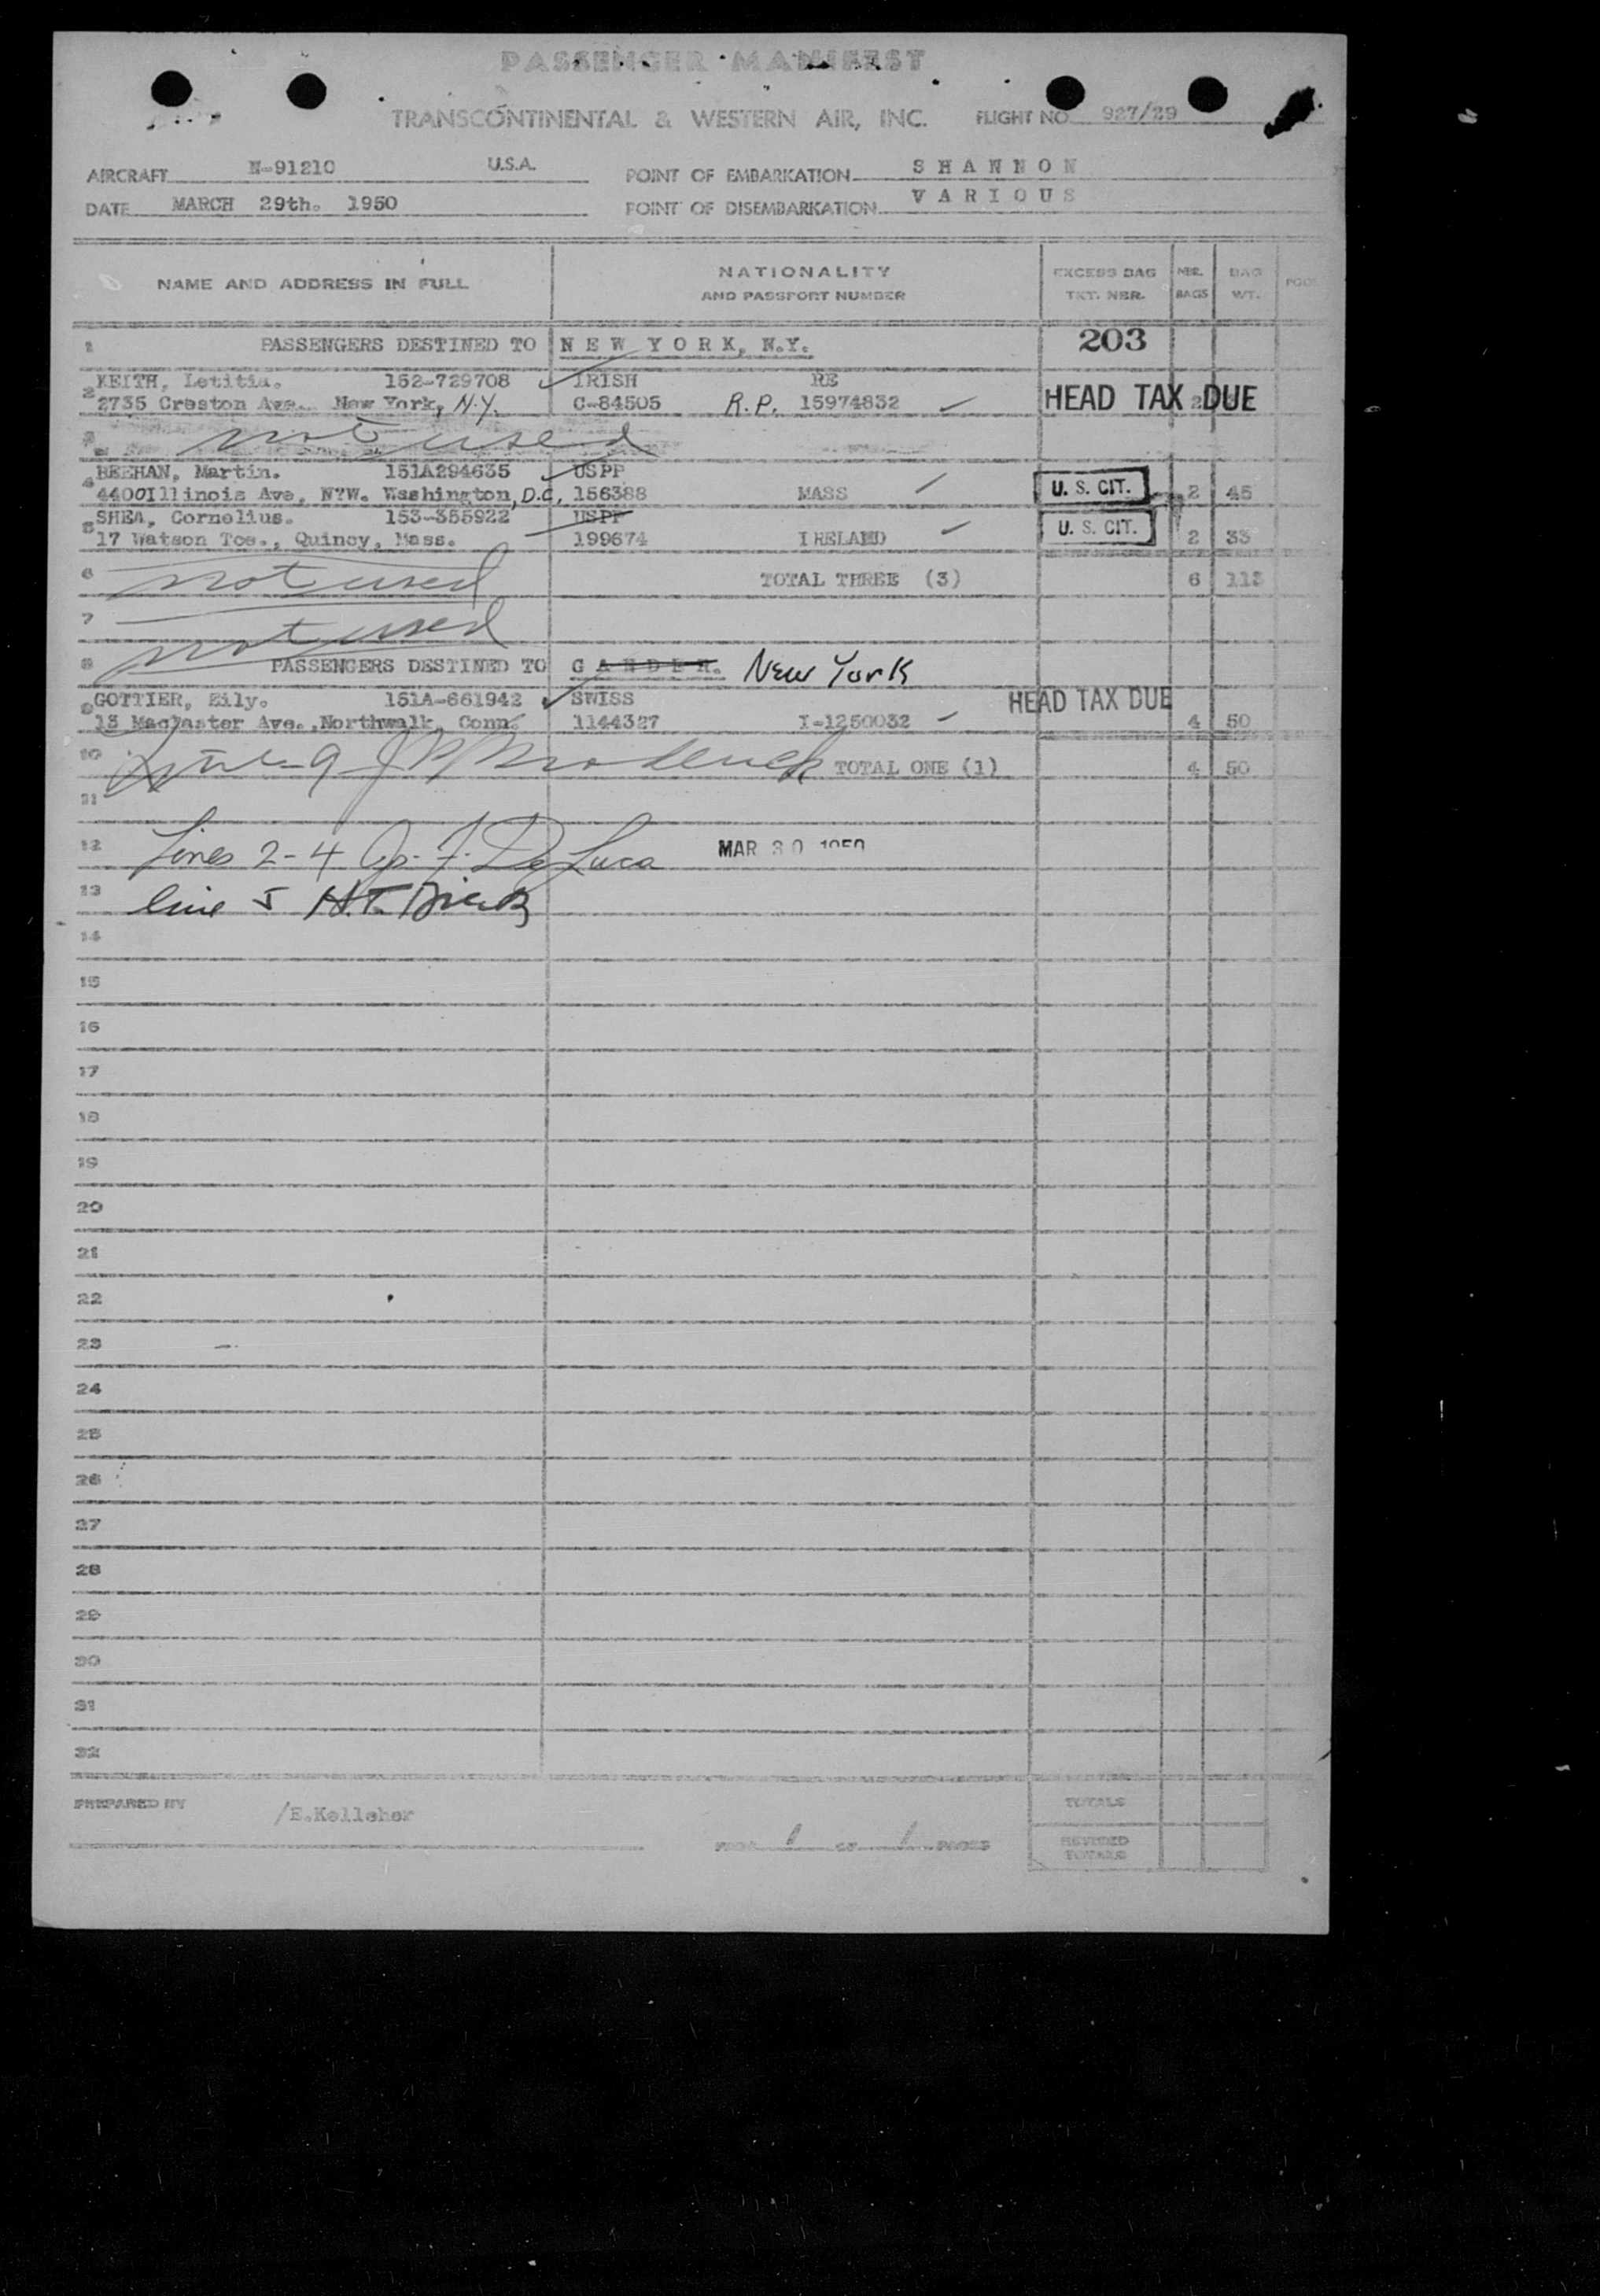 PASSENGER MANIFEST
TRANSCONTINENTAL & WESTERN AIR, INC. FLIGHT NO. 927/29
AIRCRAFT N-91210 U.S.A. POINT OF EMBARKATION SHANNON
DATE MARCH 29th. 1950 POINT OF DISEMBARKATION VARIOUS
NAME AND ADDRESS IN FULL NATIONALITY AND PASSPORT NUMBER EXCESS BAG TKT. NBR. NBR. BAGS BAG WT.
1 PASSENGERS DESTINED TO NEW YORK, N.Y. 203
2 KEITH, Letitia. 152-729708 IRISH RE
2735 Creston Ave. New York, N.Y. C-84505 R.P. 15974832 HEAD TAX DUE
not used
4 152A294635 USPP
4400Illinois Ave, N.W. Washington, D.C, 156388 MASS U. S. CIT. 2 45
5 SHEA, Cornelius. 153-355922 USPP
17 Watson Tce., Quincy, Mass. 199674 IRELAND U. S. CIT. 2 33
6 not used TOTAL THREE (3) 6 113
7 not used
8 PASSENGERS DESTINED TO GANDER. New York
9 GOTTIER, Eily. 151A-661942 SWISS HEAD TAX DUE
13 Ave., Northwalk, Conn. 1144327 I-1250032 4 50
10 Line 9 TOTAL ONE (1) 4 50
11
12 Lines 2-4 De Luca MAR 30 1950
13 line 5 H.T.
14
15
16
17
18
19
20
21
22
23
24
25
26
27
28
29
30
31
32
PREPARED BY /E.Kelleher TOTALS
PAGE 1 OF 1 PAGES REVISED TOTALS